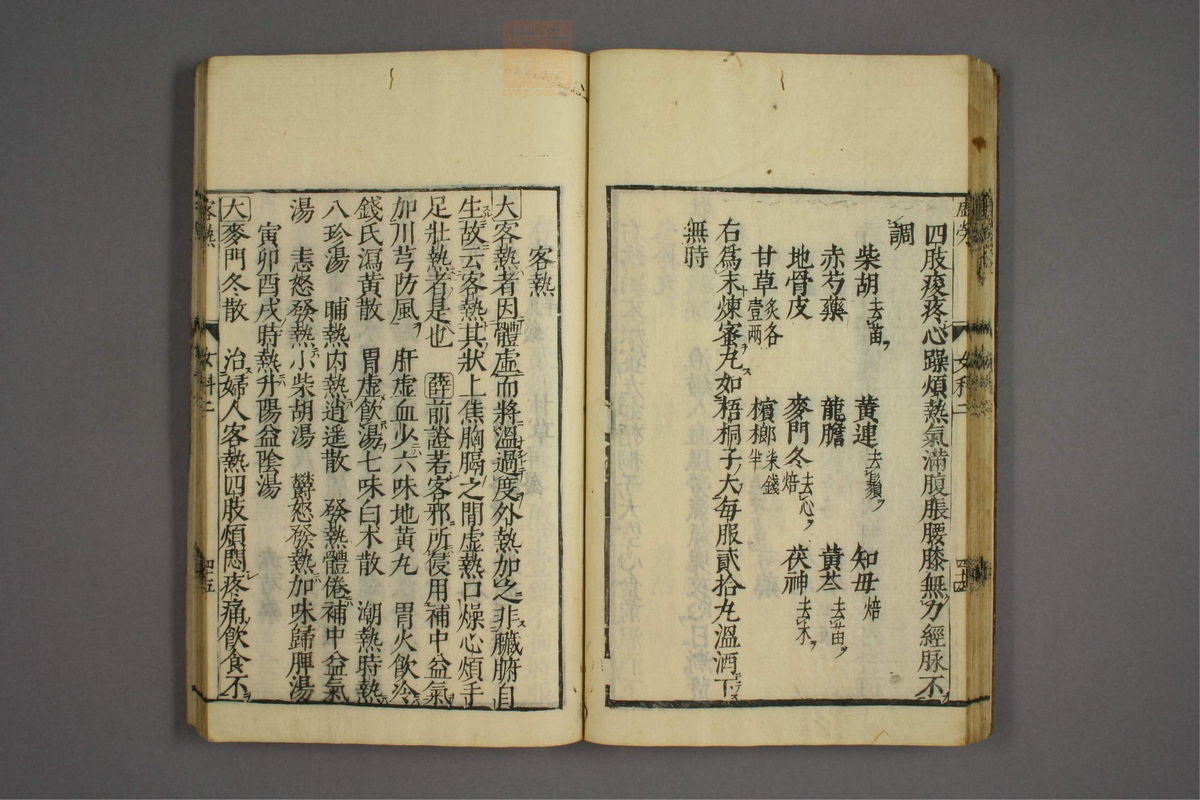 四肢痠疼心躁煩熱氣滿腹脹腰膝無力經脉不
調
柴胡去苗 黃連去鬚 知母焙
赤芍藥 龍膽 黃芩去苗
地骨皮 麥門冬去心焙 茯神去木
甘草炙各壹兩 檳榔半
右爲末煉蜜丸如梧桐子大每服貳拾丸溫酒下
無時
女科二
客熱
大客熱者因體虛而將溫過度外熱加之非臟腑自
生故云客熱其狀上焦胸膈之間虛熱口燥心煩手
足壯熱者是也 薛前證若客邪所侵用補中益氣
加川芎防風 肝虛血少六味地黃丸 胃火飲冷
錢氏瀉黃散 胃虛飲湯七味白朮散 潮熱時熱
八珍湯 晡熱内熱逍遥散 發熱體倦補中益氣
湯 恚怒發熱小柴胡湯 欝怒發熱加味歸脾湯
寅卯酉戌時熱升陽益陰湯
大麥門冬散 治婦人客熱四肢煩悶疼痛飲食不
客熱 女科二 四五